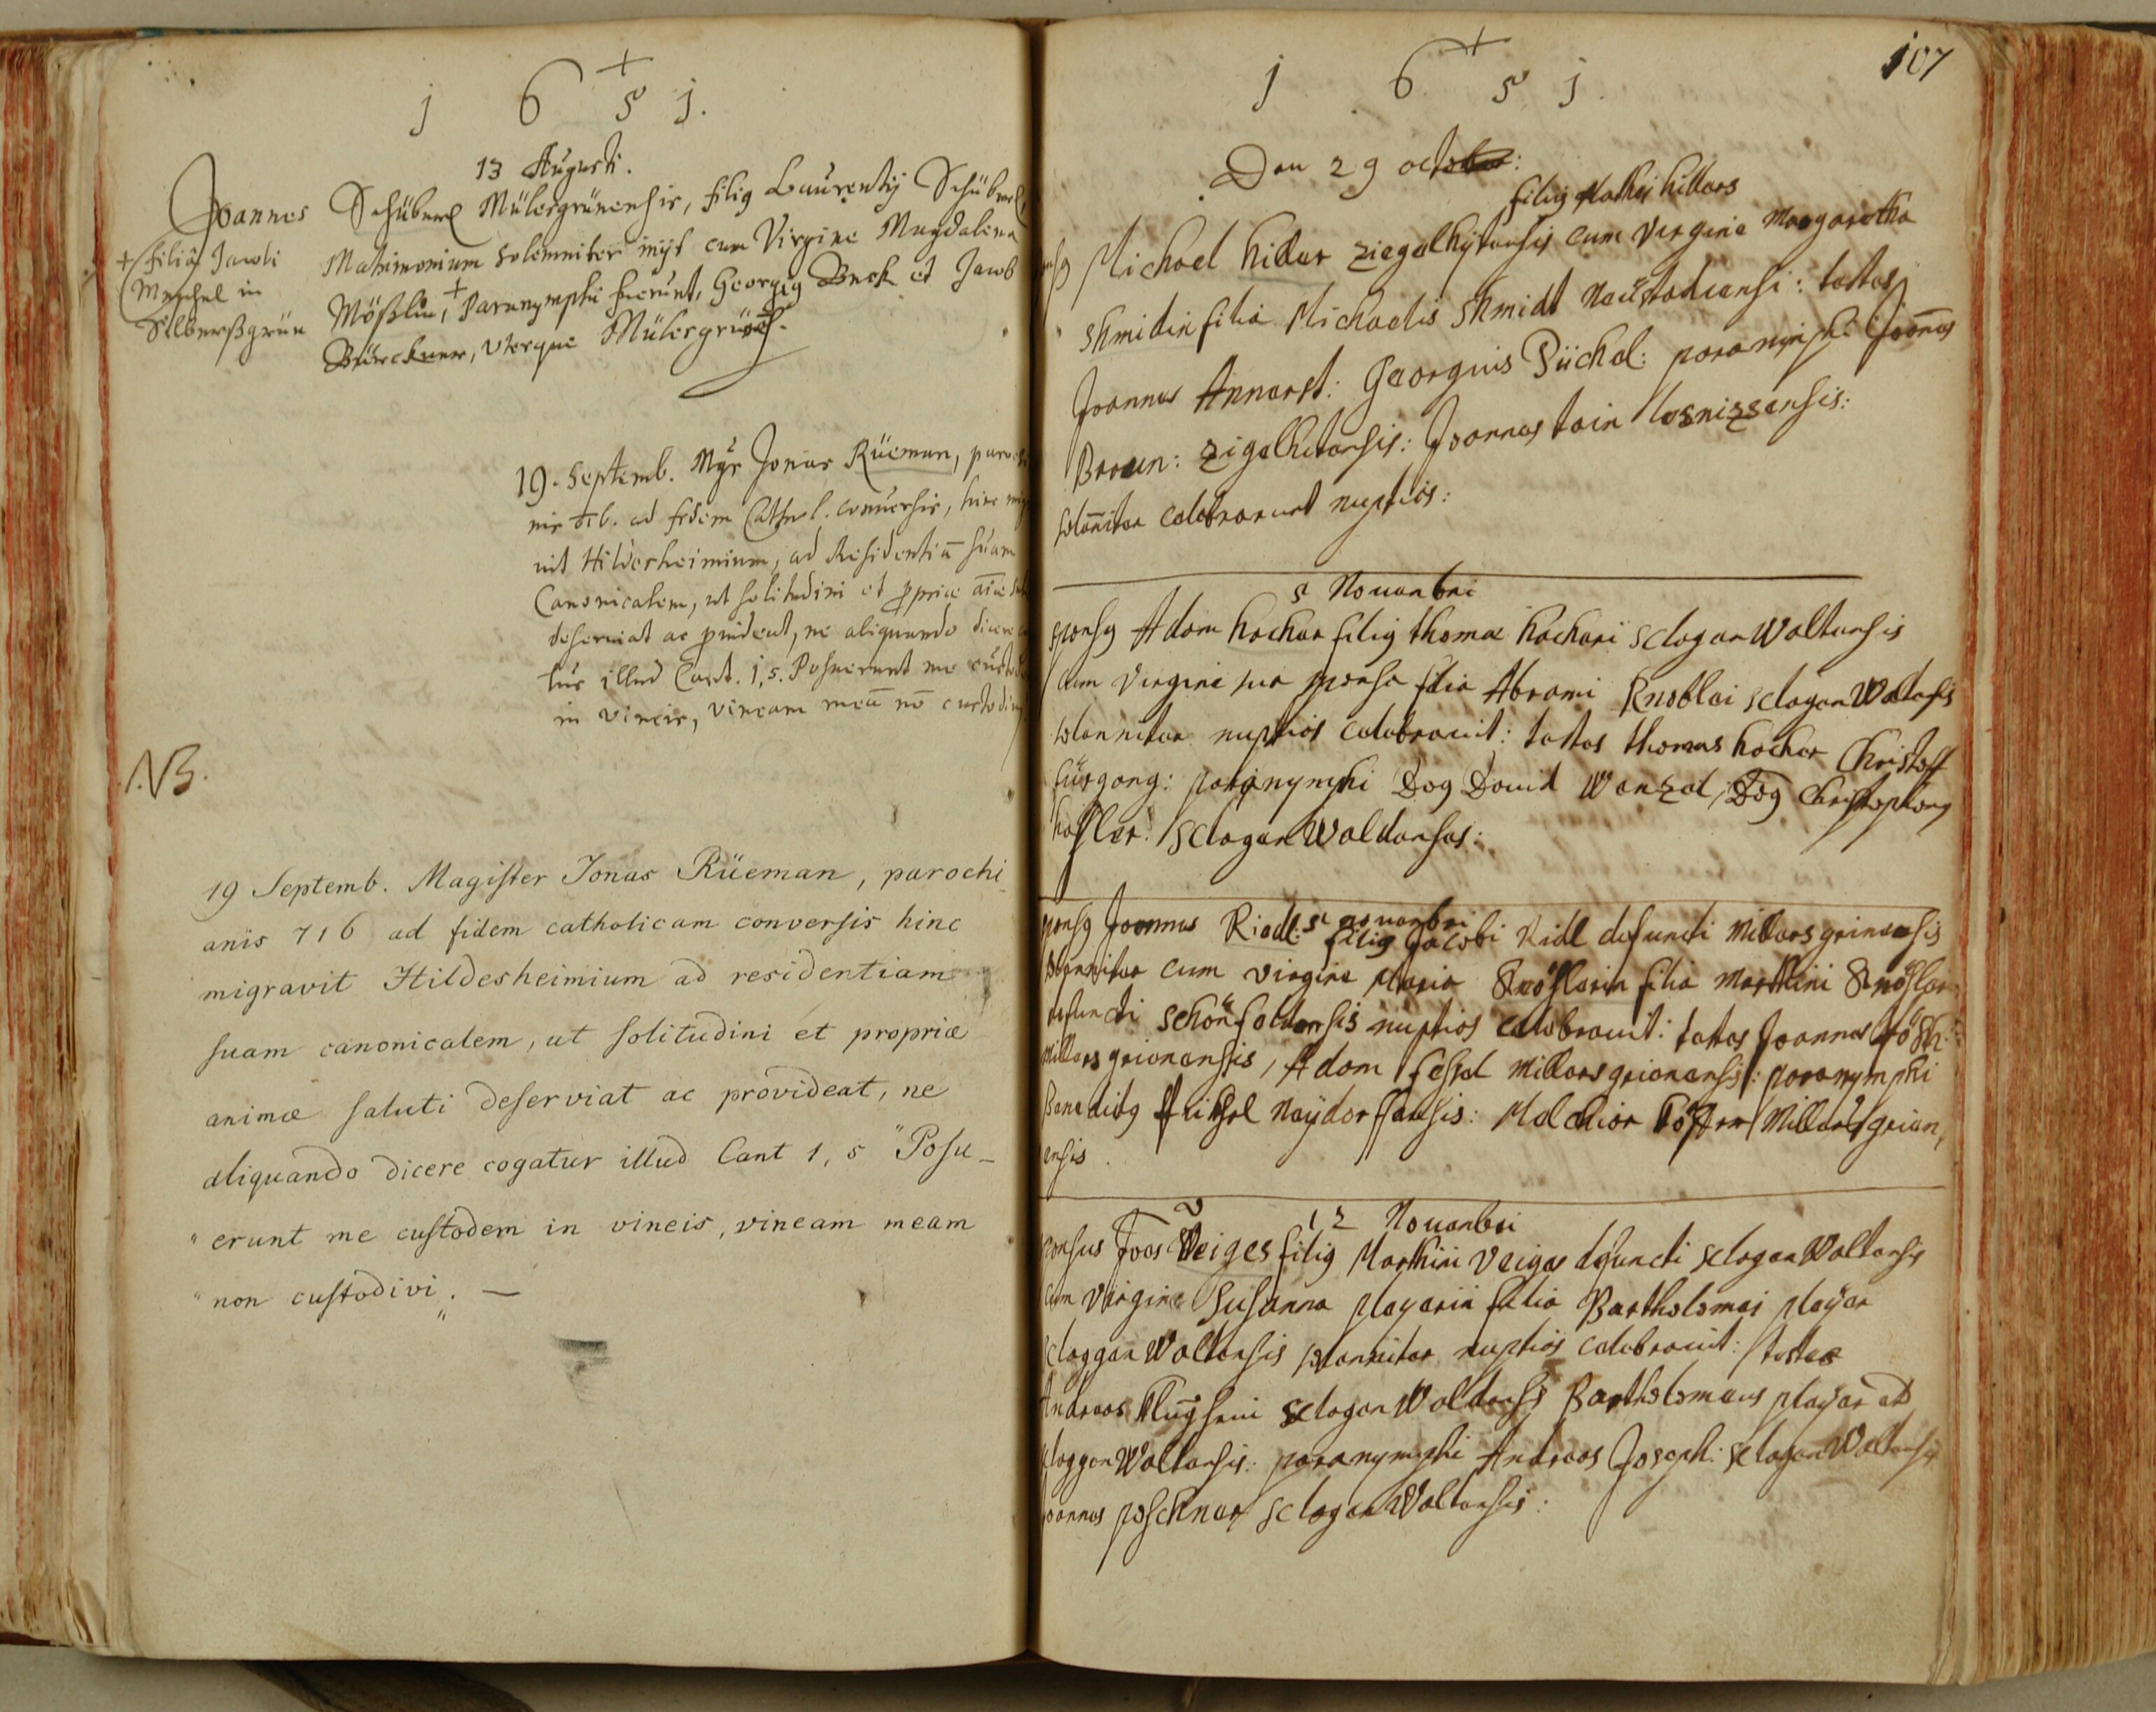 1 6 5 1.
13 Augusti.
Joannes Schüberl Mülersgrünensis, filig Laurentij Schüberl,
Matrimonium solemniter inijt cum Virgine Magdalena
Mößlin, + Paranymphi fuerunt, Georgig Beck et Jacob
Bürckner, vterque Mülersgrün
+ filia Jacobi
in
Silberßgrün
19. Septemb. Mgr Jonas Rüeman, parochi
nis 716. ad fidem Cathol. conversis, hinc mig
vit Hildesheimium, ad Residentiā suam
Canonicalem, ut solitudini et ppriæ
deserviat ac provideat, ne aliquando dicere
illud Cant. 1, 5. Posuerunt me custod
in vineis, vineam meā nō custodivi
NB.
19 Septemb. Magister Jonas Rüeman, parochi_
anis 716 ad fidem catholicam conversis hinc
migravit Hildesheimium ad residentiam
suam canonicalem, ut solitudini et propriæ
animæ saluti deserviat ac provideat, ne
aliquando dicere cogatur illud Cant 1, 5 "Posu_
" erunt me custodem in vineis, vineam meam
" non custodivi". —
107
1 6 5 1.
Den 29 october:
filig Mathei hillers
Michael hiller ziegelhütensis cum Virgine Margaretha
Shmidin filia Michaelis Shmidt Neüstadiensi: testes
Joannes Annerst: Georgius Püchel: paranymphi Joanēs
Braun: zigelhitensis: Joannes tain losnizensis:
solēniter celebrarunt nuptias:
5 Nouenbri
sponsg Adam hocher filig thomæ hocheri sclagenWaltensis
cum Virgine sua sponsa filia Abrami Knoblai sclagenWaltesis
solenniter nuptias celebrauit: testes thomas hocher Christoff
fürgang: paranymphi Dauid Wenzel, Christophorg
hosler: sclagenWaldenses:
sponsg Joannes Riedl: 5 nouenbri filig Jacobi Ridl defuncti Millersgrinensis
solenniter cum virgine Maria Knöslerin filia Marthini Knösler
defuncti schönfeldensis nuptias celebrauit: testes Joannes
Millersgrienensis, Adam Millersgrienensis: paranymphi
Benedictg Neÿdorffensis: Melchior Millersgrien,
ensis
12 Nouenbri
sponsus Joos Veiges filig Marthini Veiges defuncti sclagenWaltensis
cum Virgine Susanna playerin filia Bartholomæi player
sclaggenWaltensis solenniter nuptias celebrauit: testes
Andreas sclagenWaldensis Bartholomeus player
sclaggenWaltensis: paranymphi Andreas Joseph: sclagenWaltensis
Joannes poschner sclagenWaltensis: